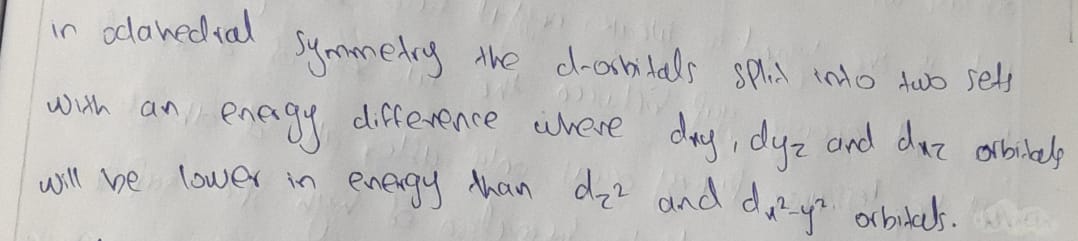 in octahedral symmetry the d-orbitals split into two sets
with an energy difference where dxy, dyz and dxz orbitals
will be lower in energy than dz² and dx²-y² orbitals.